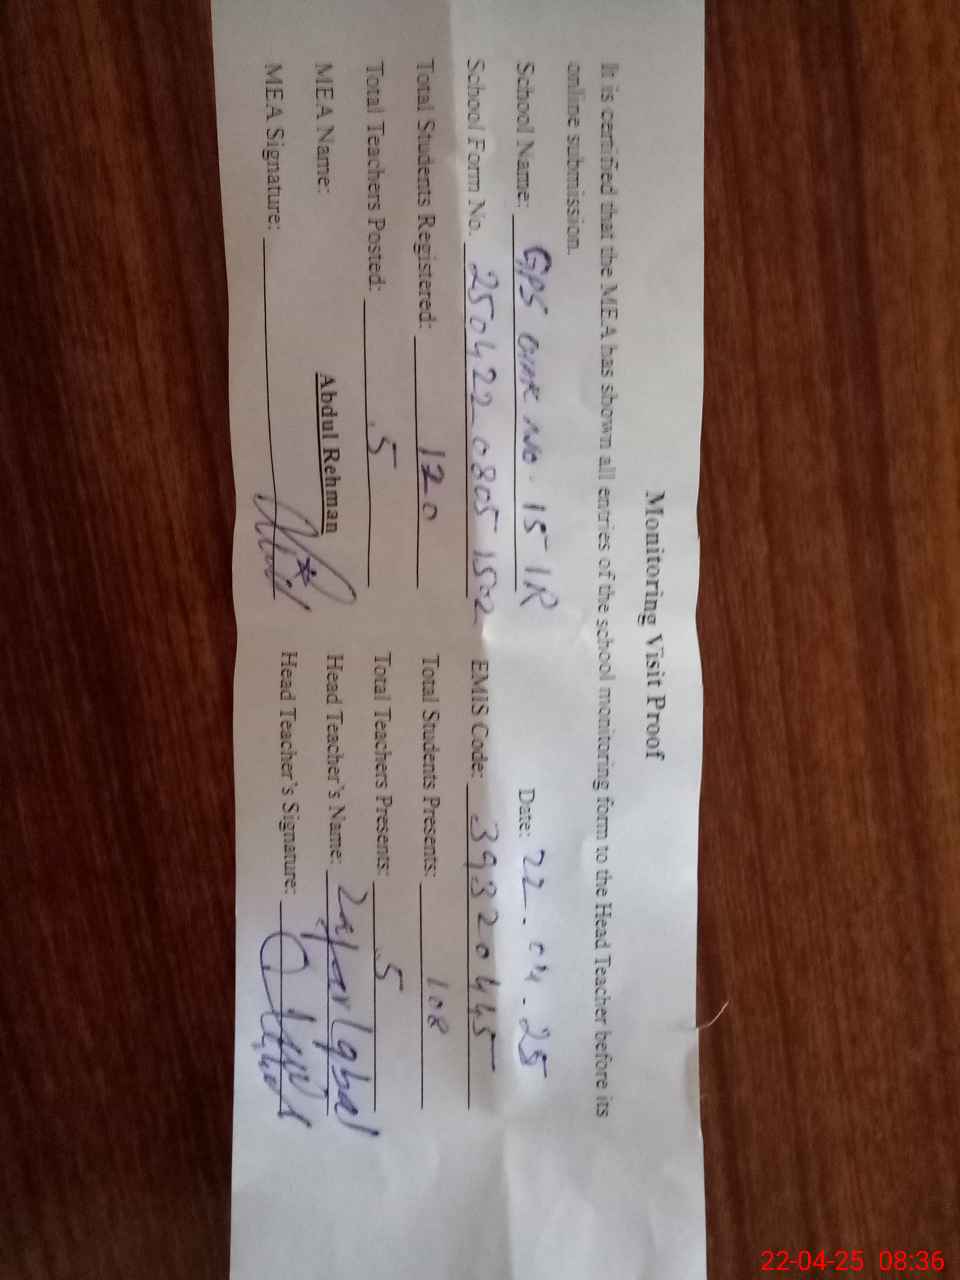 Monitoring Visit Proof
It is certified that the MEA has shown all entries of the school monitoring form to the Head Teacher before its
online submission.
School Name: GPS Chak No. 15 1R Date: 22.04.25
School Form No. 250422 0805 1502 EMIS Code: 39320445
Total Students Registered: 120 Total Students Presents: 108
Total Teachers Posted: 5 Total Teachers Presents: 5
MEA Name: Abdul Rehman Head Teacher's Name: Zafar Iqbal
MEA Signature: Head Teacher's Signature:
22-04-25 08:36